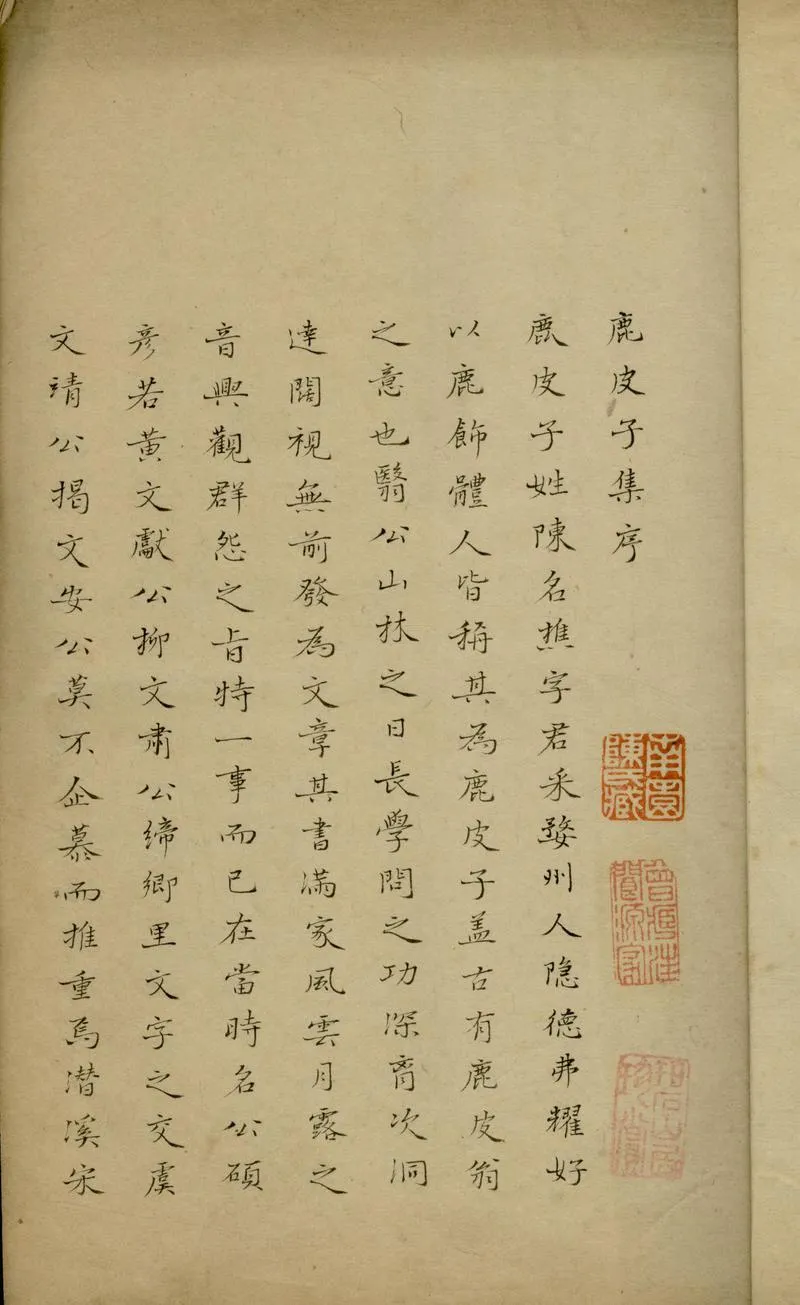 鹿皮子集序
鹿皮子姓陳名樵字君采婺州人隐德弗耀好
以鹿飾體人皆稱其為鹿皮子盖古有鹿皮翁
之意也翳公山林之日長學問之功深胷次洞
達闊視無前發為文章其書滿家風雲月露之
音興觀群怨之旨特一事而已在當時名公碩
彦若黃文獻公柳文肅公締鄉里文字之交虞
文靖公揭文安公莫不企慕而推重焉潜溪宋